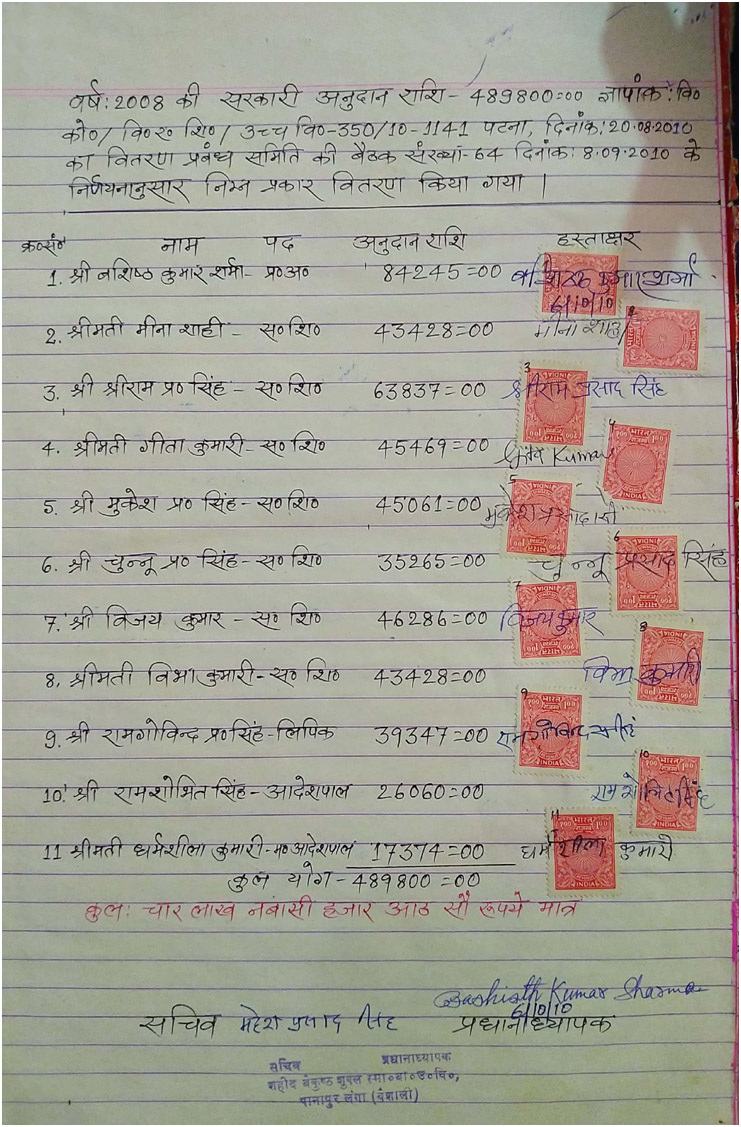 वर्ष: 2008 की सरकारी अनुदान राशि - 489800=00 ज्ञापांक: वि०
को०/ वि०रा० शि०/ उच्च वि०-350/10-1141 पटना, दिनांक: 20.08.2010
का वितरण प्रबंध समिति की बैठक संख्या-64 दिनांक: 8.09.2010 के
निर्णयनानुसार निम्न प्रकार वितरण किया गया |
क्र०सं० नाम पद अनुदान राशि हस्ताक्षर
1. श्री वशिष्ठ कुमार शर्मा - प्र०अ० 84245=00 वशिष्ठ कुमार शर्मा
6/10/10
2. श्रीमती मीना शाही - स०शि० 43428=00 मीना शाही
3. श्री श्रीराम प्र० सिंह - स०शि० 63837=00 श्रीराम प्रसाद सिंह
4. श्रीमती गीता कुमारी - स०शि० 45469=00 Gita Kumari
5. श्री मुकेश प्र० सिंह - स०शि० 45061=00 मुकेश प्रसाद
6. श्री चुन्नू प्र० सिंह - स०शि० 35265=00 चुन्नू प्रसाद सिंह
7. श्री विजय कुमार - स० शि० 46286=00 विजय कुमार
8. श्रीमती विभा कुमारी - स० शि० 43428=00 विभा कुमारी
9. श्री रामगोविन्द प्र० सिंह - लिपिक 39347=00 रामगोविन्द
10. श्री रामशोभित सिंह - आदेशपाल 26060=00 राम शोभित सिंह
11 श्रीमती धर्मशीला कुमारी - म० आदेशपाल 17374=00 धर्मशीला कुमारी
कुल योग - 489800=00
कुल: चार लाख नवासी हजार आठ सौ रूपये मात्र
Bashisth Kumar Sharma
6/10/10
सचिव महेश प्रसाद सिंह प्रधानाध्यापक
सचिव प्रधानाध्यापक
शहीद बैकुण्ठ शुक्ल स्मा०बा०उ०वि०,
पानापुर लंगा (वैशाली)